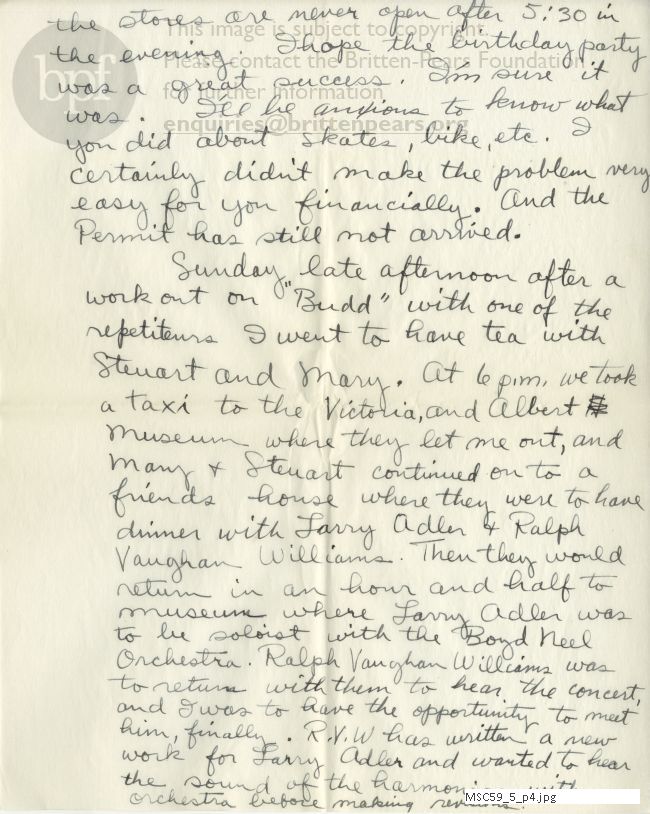 the stores are never open after 5:30 in
the evening. I hope the birthday party
was a great success. I'm sure it
was. I'll be anxious to know what
you did about skates, bike, etc. I
certainly didn't make the problem very
easy for you financially. And the
Permit has still not arrived.
Sunday late afternoon after a
work out on "Budd" with one of the
repetiteurs I went to have tea with
Steuart and Mary. At 6 p.m. we took
a taxi to the Victoria, and Albert
Museum where they let me out, and
Mary & Steuart continued on to a
friends house where they were to have
dinner with Larry Adler & Ralph
Vaughan Williams. Then they would
return in an hour and half to
museum where Larry Adler was
to be soloist with the Boyd Neel
Orchestra. Ralph Vaughan Williams was
to return with them to hear the concert,
and I was to have the opportunity to meet
him, finally. R.V.W has written a new
work for Larry Adler and wanted to hear
the sound of the harmonica with
orchestra before making revisions.
bpf
This image is subject to copyright.
Please contact the Britten-Pears Foundation
for further information
enquiries@brittenpears.org
MSC59_5_p4.jpg